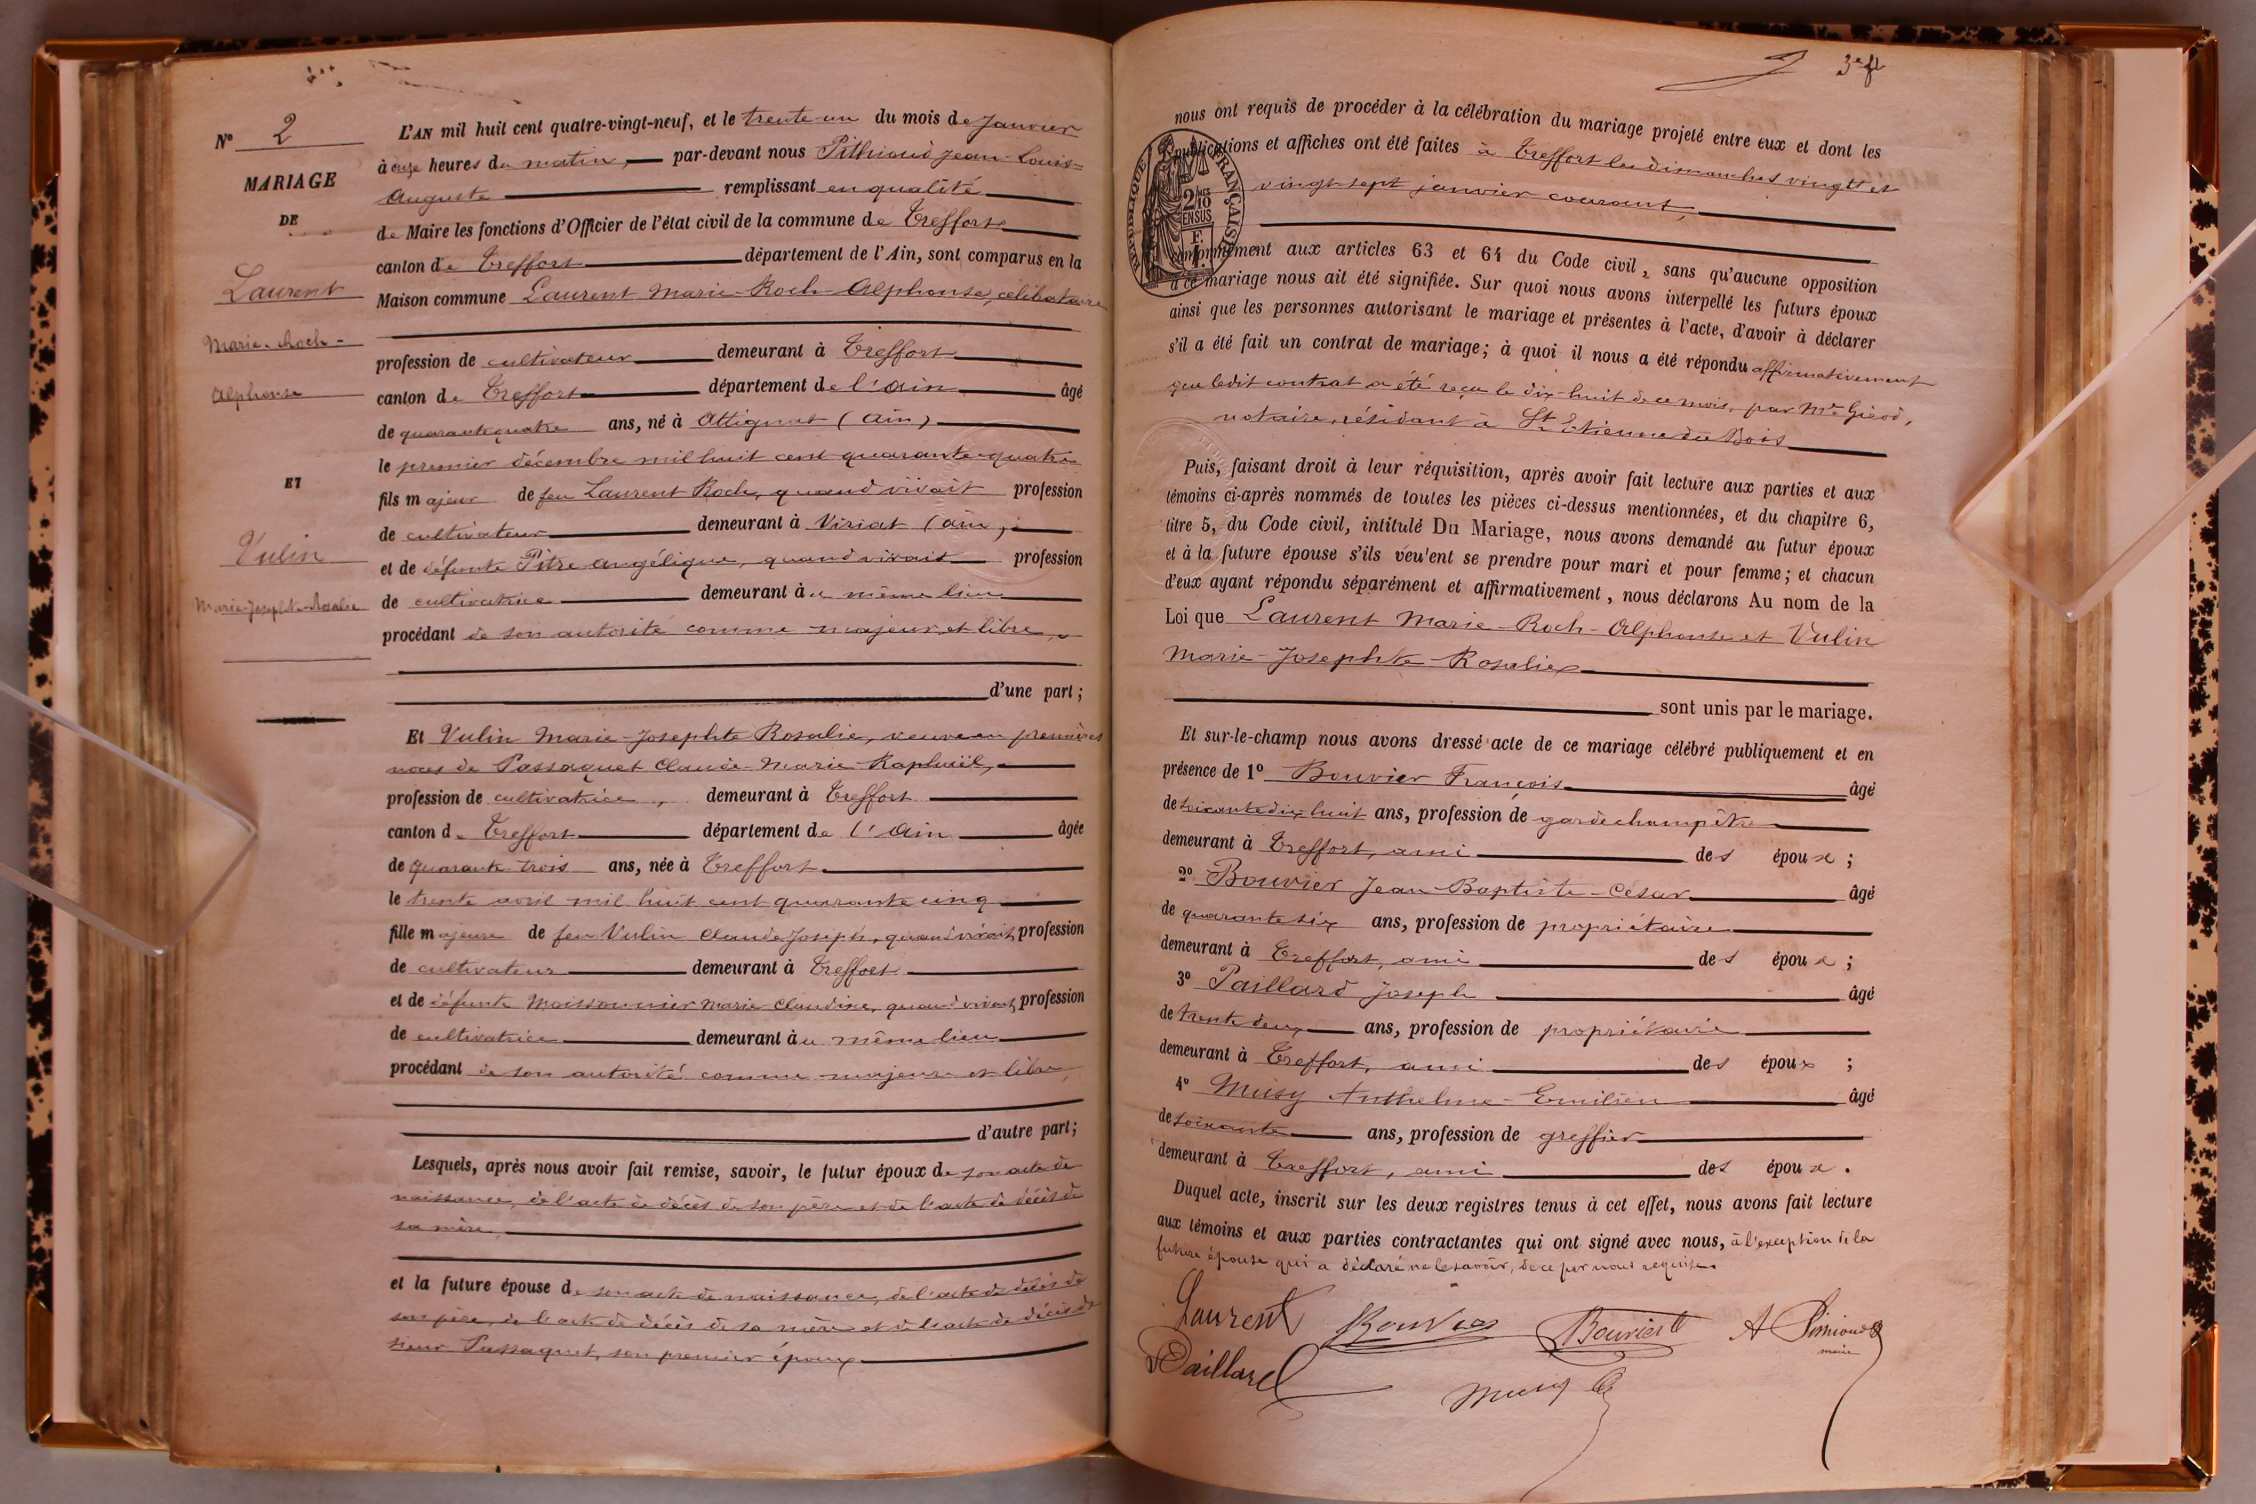 N° 2
MARIAGE
DE
Laurent
Marie-Roch-
Alphonse
ET
Vulin
Marie-Josephte-Rosalie
L'AN mil huit cent quatre-vingt-neuf, et le trente-un du mois de janvier
à onze heures du matin, par-devant nous Pithioud Jean-Louis-
Auguste remplissant en qualité
de Maire les fonctions d'Officier de l'état civil de la commune de Treffort
canton de Treffort département de l'Ain, sont comparus en la
Maison commune Laurent Marie-Roch-Alphonse, célibataire
profession de cultivateur demeurant à Treffort
canton de Treffort département de l'Ain âgé
de quarante quatre ans, né à Attignat (Ain)
le premier décembre mil huit cent quarante-quatre
fils majeur de feu Laurent Roch, quand vivait profession
de cultivateur demeurant à Viriat (Ain),
et de défunte Pitre Angélique, quand vivait profession
de cultivatrice demeurant au même lieu
procédant de son autorité comme majeur et libre,
d'une part ;
Et Vulin Marie-Josephte Rosalie, veuve en premières
noces de Passaquet Claude-Marie Raphaël,
profession de cultivatrice, demeurant à Treffort
canton de Treffort département de l'Ain âgée
de quarante-trois ans, née à Treffort
le trente avril mil huit cent quarante cinq
fille majeure de feu Vulin Claude Joseph, quand vivait, profession
de cultivateur demeurant à Treffort
et de défunte Moissonnier Marie-Claudine, quand vivait, profession
de cultivatrice demeurant au même lieu
procédant de son autorité comme majeure et libre,
d'autre part;
Lesquels, après nous avoir fait remise, savoir, le futur époux de son acte de
naissance, de l'acte de décès de son père et de l'acte de décès de
sa mère,
et la future épouse de son acte de naissance, de l'acte de décès de
son père, de l'acte de décès de sa mère et de l'acte de décès de
sieur Passaquet, son premier époux
nous ont requis de procéder à la célébration du mariage projeté entre eux et dont les
publications et affiches ont été faites à Treffort les dimanches vingt et
vingt-sept janvier courant,
RÉPUBLIQUE FRANÇAISE
2/10 EN SUS
conformément aux articles 63 et 64 du Code civil, sans qu'aucune opposition
à ce mariage nous ait été signifiée. Sur quoi nous avons interpellé les futurs époux
ainsi que les personnes autorisant le mariage et présentes à l'acte, d'avoir à déclarer
s'il a été fait un contrat de mariage; à quoi il nous a été répondu affirmativement
que ledit contrat a été reçu le dix-huit de ce mois, par Me
notaire, résidant à St Etienne du Bois
Puis, faisant droit à leur réquisition, après avoir fait lecture aux parties et aux
témoins ci-après nommés de toutes les pièces ci-dessus mentionnées, et du chapitre 6,
titre 5, du Code civil, intitulé Du Mariage, nous avons demandé au futur époux
et à la future épouse s'ils veu'ent se prendre pour mari et pour femme; et chacun
d'eux ayant répondu séparément et affirmativement, nous déclarons Au nom de la
Loi que Laurent Marie-Roch-Alphonse et Vulin
Marie-Josephte-Rosalie
sont unis par le mariage.
Et sur-le-champ nous avons dressé acte de ce mariage célébré publiquement et en
présence de 1° Bouvier François âgé
de soixante dix huit ans, profession de garde champêtre
demeurant à Treffort, ami des époux ;
2° Bouvier Jean-Baptiste-César âgé
de quarante six ans, profession de propriétaire
demeurant à Treffort, ami des époux ;
3° Paillard Joseph âgé
de trente deux ans, profession de propriétaire
demeurant à Treffort, ami des époux ;
4° Musy Anthelme-Emilien âgé
de soixante ans, profession de greffier
demeurant à Treffort, ami des époux .
Duquel acte, inscrit sur les deux registres tenus à cet effet, nous avons fait lecture
aux témoins et aux parties contractantes qui ont signé avec nous, à l'exception de la
future épouse qui a déclaré ne le savoir, de ce par nous requise.
Laurent Bouvier Bouvier A Pithioud
maire
Paillard Musy